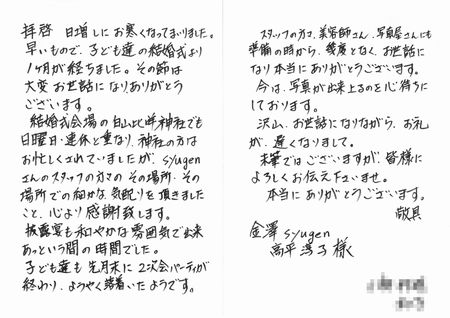 拝啓 日増しにお寒くなってまいりました。
早いもので、子ども達の結婚式より
1ヶ月が経ちました。その節は
大変お世話になりありがとう
ございます。
結婚式会場の白山比咩神社でも
日曜日・連休と重なり、神社の方は
お忙しくされていましたが、syugen
さんのスタッフの方々のその場所、その
場所での細かな気配りを頂きました
こと、心より感謝致します。
披露宴も和やかな雰囲気で出来
あっという間の時間でした。
子ども達も先月末に2次会パーティが
終わり、ようやく落着いたようです。
スタッフの方々、美容師さん、写真屋さんにも
準備の時から、幾度となく、お世話に
なり本当にありがとうございます。
今は、写真が出来上るのを心待ちに
しております。
沢山、お世話になりながら、お礼
が、遅くなりまして。
末筆ではございますが、皆様に
よろしくお伝え下さいませ。
本当にありがとうございます。
敬具
金澤syugen
高平 子様